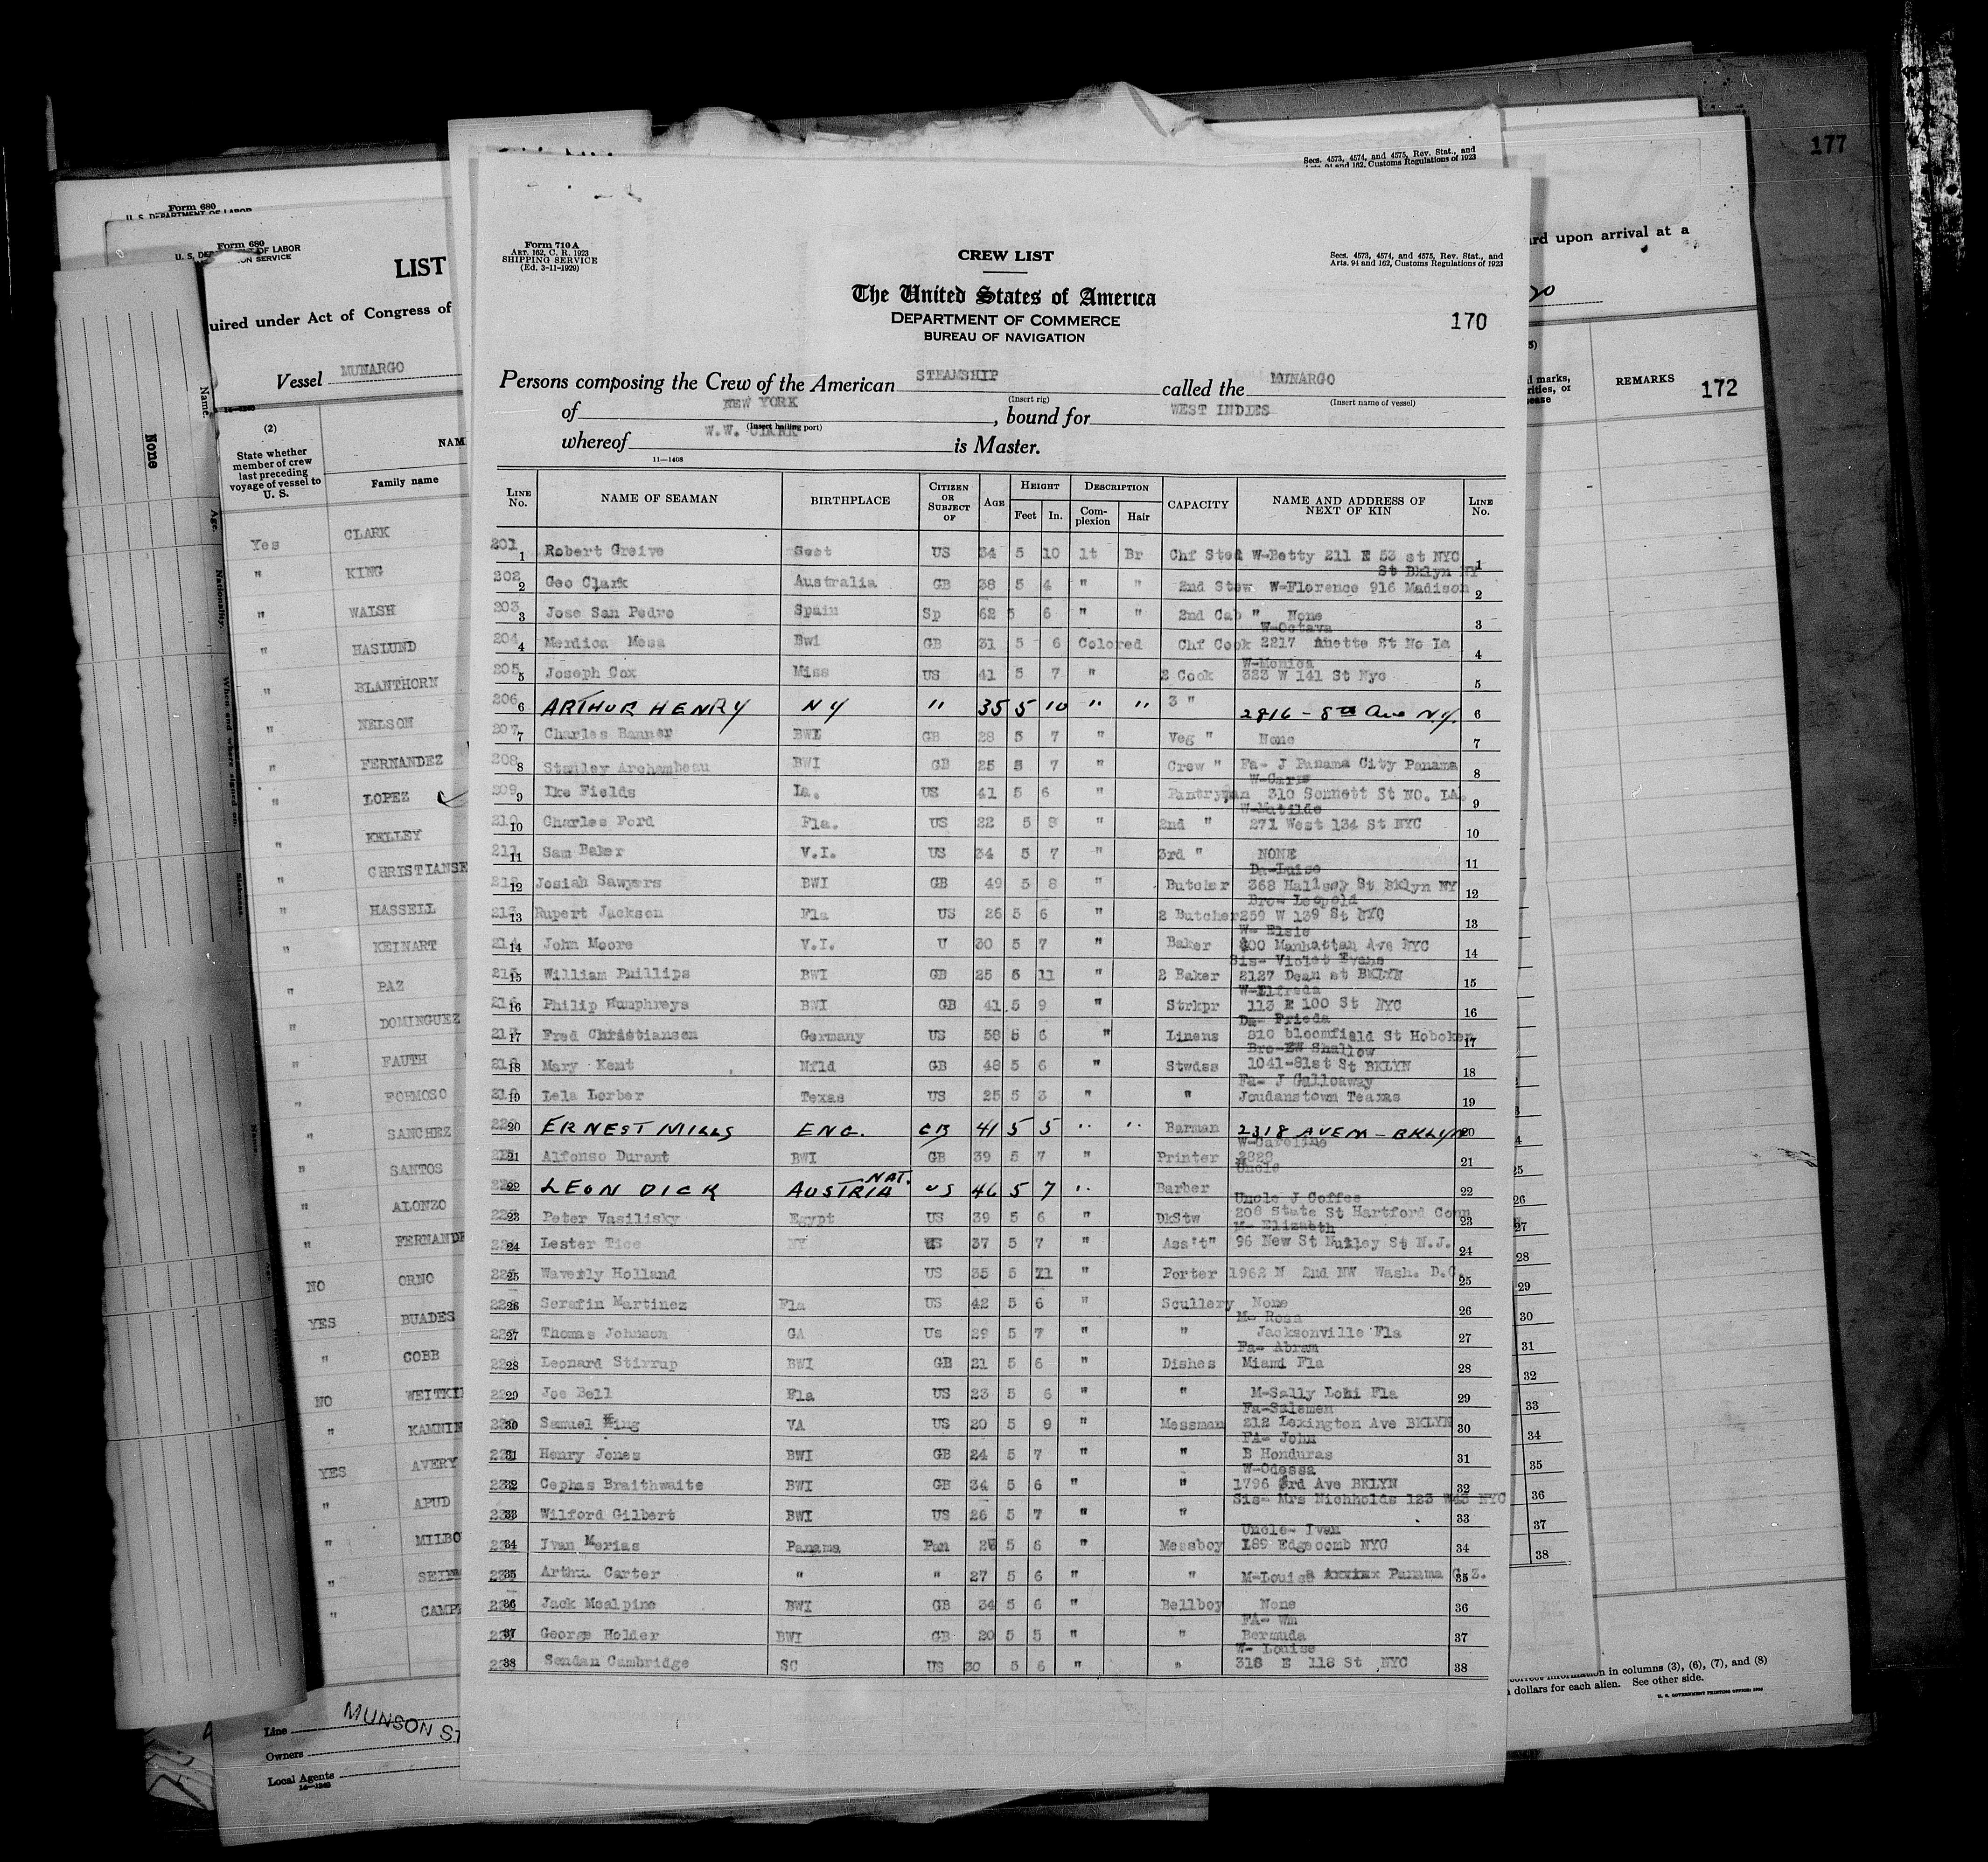 177
Form 680
U. S. DEPARTMENT OF LABOR
Form 680
U. S. DEP OF LABOR
ION SERVICE
LIST
uired under Act of Congress of
Vessel MUNARGO
(2)
State whether
member of crew
last preceding
voyage of vessel to
U. S.
NAM
Family name
Name
None
Age
Nationality
Yes CLARK
" KING
" WALSH
" HASLUND
" BLANTHORN
" NELSON
" FERNANDEZ
" LOPEZ
" KELLEY
" CHRISTIANSE
" HASSELL
" KEINART
" PAZ
" DOMINGUEZ
" FAUTH
" FORMOSO
" SANCHEZ
" SANTOS
" ALONZO
" FERNANDE
NO ORNO
YES BUADES
" COBB
NO WEITKI
" KAMNIN
YES AVERY
" APUD
" MILBO
" SEI
" CAMP
Line MUNSON ST
Owners
Local Agents
14—1240
Secs. 4573, 4574, and 4575, Rev. Stat., and
Arts. 94 and 162, Customs Regulations of 1923
Form 710 A
ART. 162, C. R. 1923
SHIPPING SERVICE
(Ed. 3-11-1929)
CREW LIST
Secs. 4573, 4574, and 4575, Rev. Stat., and
Arts. 94 and 162, Customs Regulations of 1923
The United States of America
DEPARTMENT OF COMMERCE
BUREAU OF NAVIGATION
170
Persons composing the Crew of the American STEAMSHIP called the MUNARGO
(Insert rig) (Insert name of vessel)
of NEW YORK, bound for WEST INDIES
(Insert hailing port)
whereof W.W. CLARK is Master.
11—1468
LINE No. NAME OF SEAMAN BIRTHPLACE CITIZEN OR SUBJECT OF AGE HEIGHT Feet In. DESCRIPTION Complexion Hair CAPACITY NAME AND ADDRESS OF NEXT OF KIN LINE No.
201 1 Robert Greive Scot US 34 5 10 lt Br Chf Sted W-Betty 211 E 53 st NYC 1
St Bklyn NY
202 2 Geo Clark Australia GB 38 5 4 " " 2nd Stew W-Florence 916 Madison 2
203 3 Jose San Pedro Spain Sp 62 5 6 " " 2nd Cab " None 3
W-Octava
204 4 Merdica Mesa Bwi GB 31 5 6 Colored Chf Cook 2217 Anette St No La 4
W-Monica
205 5 Joseph Cox Miss US 41 5 7 " 2 Cook 323 W 141 St Nyc 5
206 6 ARTHUR HENRY NY " 35 5 10 " " 3 " 2816 - 8th Ave N.Y. 6
207 7 Charles Banner BWI GB 28 5 7 " Veg " None 7
208 8 Stanley Archambeau BWI GB 25 5 7 " Crew " Fa- J Panama City Panama 8
W-Carie
209 9 Ike Fields La. US 41 5 6 " Pantryman 310 Sennett St NO. LA. 9
W-Matilde
210 10 Charles Ford Fla. US 22 5 8 " 2nd " 271 West 134 St NYC 10
211 11 Sam Baker V.I. US 34 5 7 " 3rd " NONE 11
Da-Luise
212 12 Josiah Sawyers BWI GB 49 5 8 " Butcher 368 Hallsey St Bklyn NY 12
Bro- Leopold
213 13 Rupert Jackson Fla US 26 5 6 " 2 Butcher 259 W 139 St NYC 13
W- Elsie
214 14 John Moore V.I. U 30 5 7 " Baker 400 Manhattan Ave NYC 14
Sis- Violet Evans
215 15 William Phillips BWI GB 25 5 11 " 2 Baker 2127 Dean st BKLYN 15
W-Elfreda
216 16 Philip Humphreys BWI GB 41 5 9 " Strkpr 113 E 100 St NYC 16
Da- Frieda
217 17 Fred Christiansen Germany US 58 5 6 " Linens 810 bloomfield St Hoboken 17
Bro-EW Shallow
218 18 Mary Kent Nfld GB 48 5 6 " Stwdss 1041-81st St BKLYN 18
Fa- J Galloaway
219 19 Lela Lorber Texas US 25 5 3 " " Joudanstown Teaxas 19
220 20 ERNEST MILLS ENG. GB 41 5 5 " " Barman 2318 AVE M - BKLYN 20
W-Caroline
221 21 Alfonso Durant BWI GB 39 5 7 " Printer 2828 21
Uncle
222 22 LEON DICK AUSTRIA NAT. US 46 5 7 " Barber 22
Uncle J Coffee
223 23 Peter Vasilisky Egypt US 39 5 6 " DkStw 208 State St Hartford Conn 23
M- Elizabth
224 24 Lester Tice NY US 37 5 7 " Ass't" 96 New St Nutley St N.J. 24
225 25 Waverly Holland US 35 5 71 " Porter 1962 N 2nd NW Wash. D.C. 25
226 26 Serafin Martinez Fla US 42 5 6 " Scullery None 26
M- Rosa
227 27 Thomas Johnson GA Us 29 5 7 " " Jacksonville Fla 27
Fa- Abram
228 28 Leonard Stirrup BWI GB 21 5 6 " Dishes Miami Fla 28
229 29 Joe Bell Fla US 23 5 6 " " M-Sally Lohi Fla 29
Fa-Salemen
230 30 Samuel King VA US 20 5 9 " Messman 212 Lexington Ave BKLYN 30
FA- John
231 31 Henry Jones BWI GB 24 5 7 " " B Honduras 31
W-Odessa
232 32 Cephas Braithwaite BWI GB 34 5 6 " " 1796 3rd Ave BKLYN 32
Sis- Mrs Nichholds 123 W43 NYC
233 33 Wilford Gilbert BWI US 26 5 7 " " 33
Uncle- Ivan
234 34 Ivan Merias Panama Pan 5 6 " Messboy 189 Edgecomb NYC 34
235 35 Arthu. Carter " " 27 5 6 " " M-Louise Panama C.Z. 35
236 36 Jack Mcalpine BWI GB 34 5 6 " Bellboy None 36
FA- Wm
237 37 George Holder BWI GB 20 5 5 " " Bermuda 37
W- Louise
238 38 Sendan Cambridge SC US 30 5 6 " " 318 E 118 St NYC 38
ard upon arrival at a
REMARKS
172
l marks,
rities, or
ease
25
26
27
28
29
30
31
32
33
34
35
36
37
38
correct information in columns (3), (6), (7), and (8)
dollars for each alien. See other side.
U. S. GOVERNMENT PRINTING OFFICE